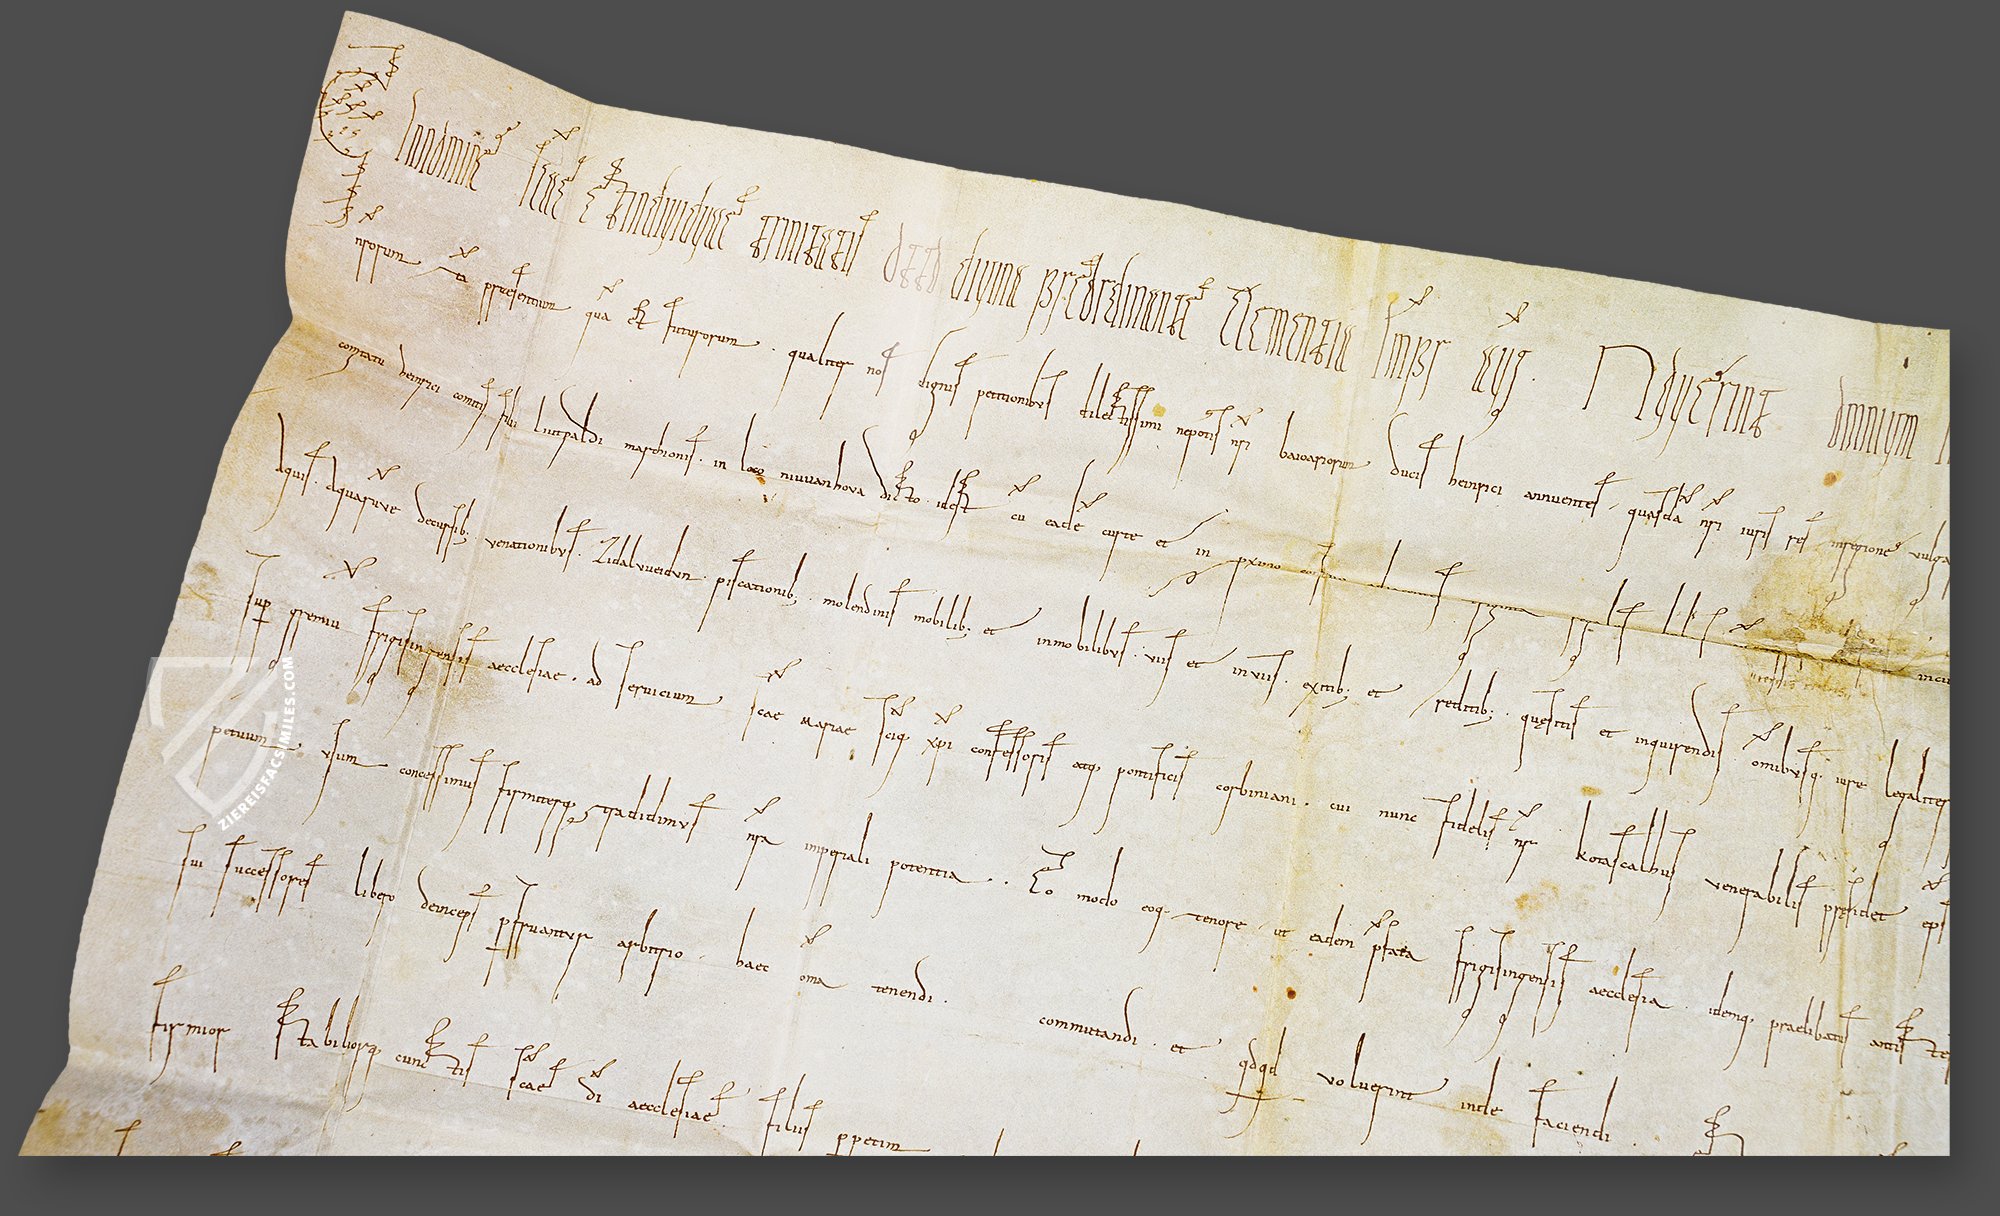 Innomine sc̃ae & indiuiduae trinitatis otto diuina preordinante clementia imp̃r aug̃. Nouerint omnium
nr̃orum tã praesentium quã & futurorum . qualiter nos dignis petitionibus dilectissimi nepotis nr̃i baioariorum ducis heinrici annuentes quasdã nr̃i iuris res inregione vulga
comitatu heinrici comitis filii liutpaldi marchionis . in loco niuuanhova dicto . id est cũ eadẽ curte et in pximo
Aquis . aquarũve decursib; venationibus . Zidalvueidvn . piscationib; . molendinis mobilib; et inmobilibus . viis et inviis . exitib; et reditib; . quęsitis et inquirendis . om̃ibusq; iure legaliter
sup gremiũ frigisingensis aecclesiae . ad servicium sc̃ae mariae sc̃iq; xp̃i confessoris atq; pontificis corbiniani . cui nunc fidelis nr̃ kotascalhus venerabilis pręsidet ep̃s
petuum usum concessimus firmiterq; tradidimus nr̃a imperiali potentia . Eo modo eoq; tenore ut eadem p̃fata frigisingensis aecclesia . idemq; praelibatus antistes
sui successores libero deinceps pfruantur arbitrio . haec om̃a tenendi . commutandi . et qdqd voluerint inde faciendi . Et
firmior stabiliorq; cunctis sc̃ae dĩ aecclesiae filiis ppetim
ZIEREISFACSIMILES.COM